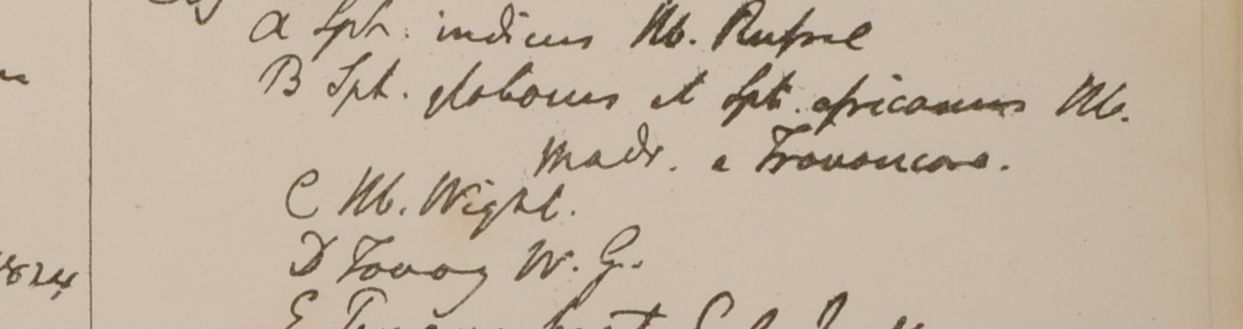 a Sph. indicus Hb. Russel
B Sph. globosus et Sph. africanus Hb.
Madr. e Travancore.
C Hb. Wight.
D Tavoy W. G.
E
1824